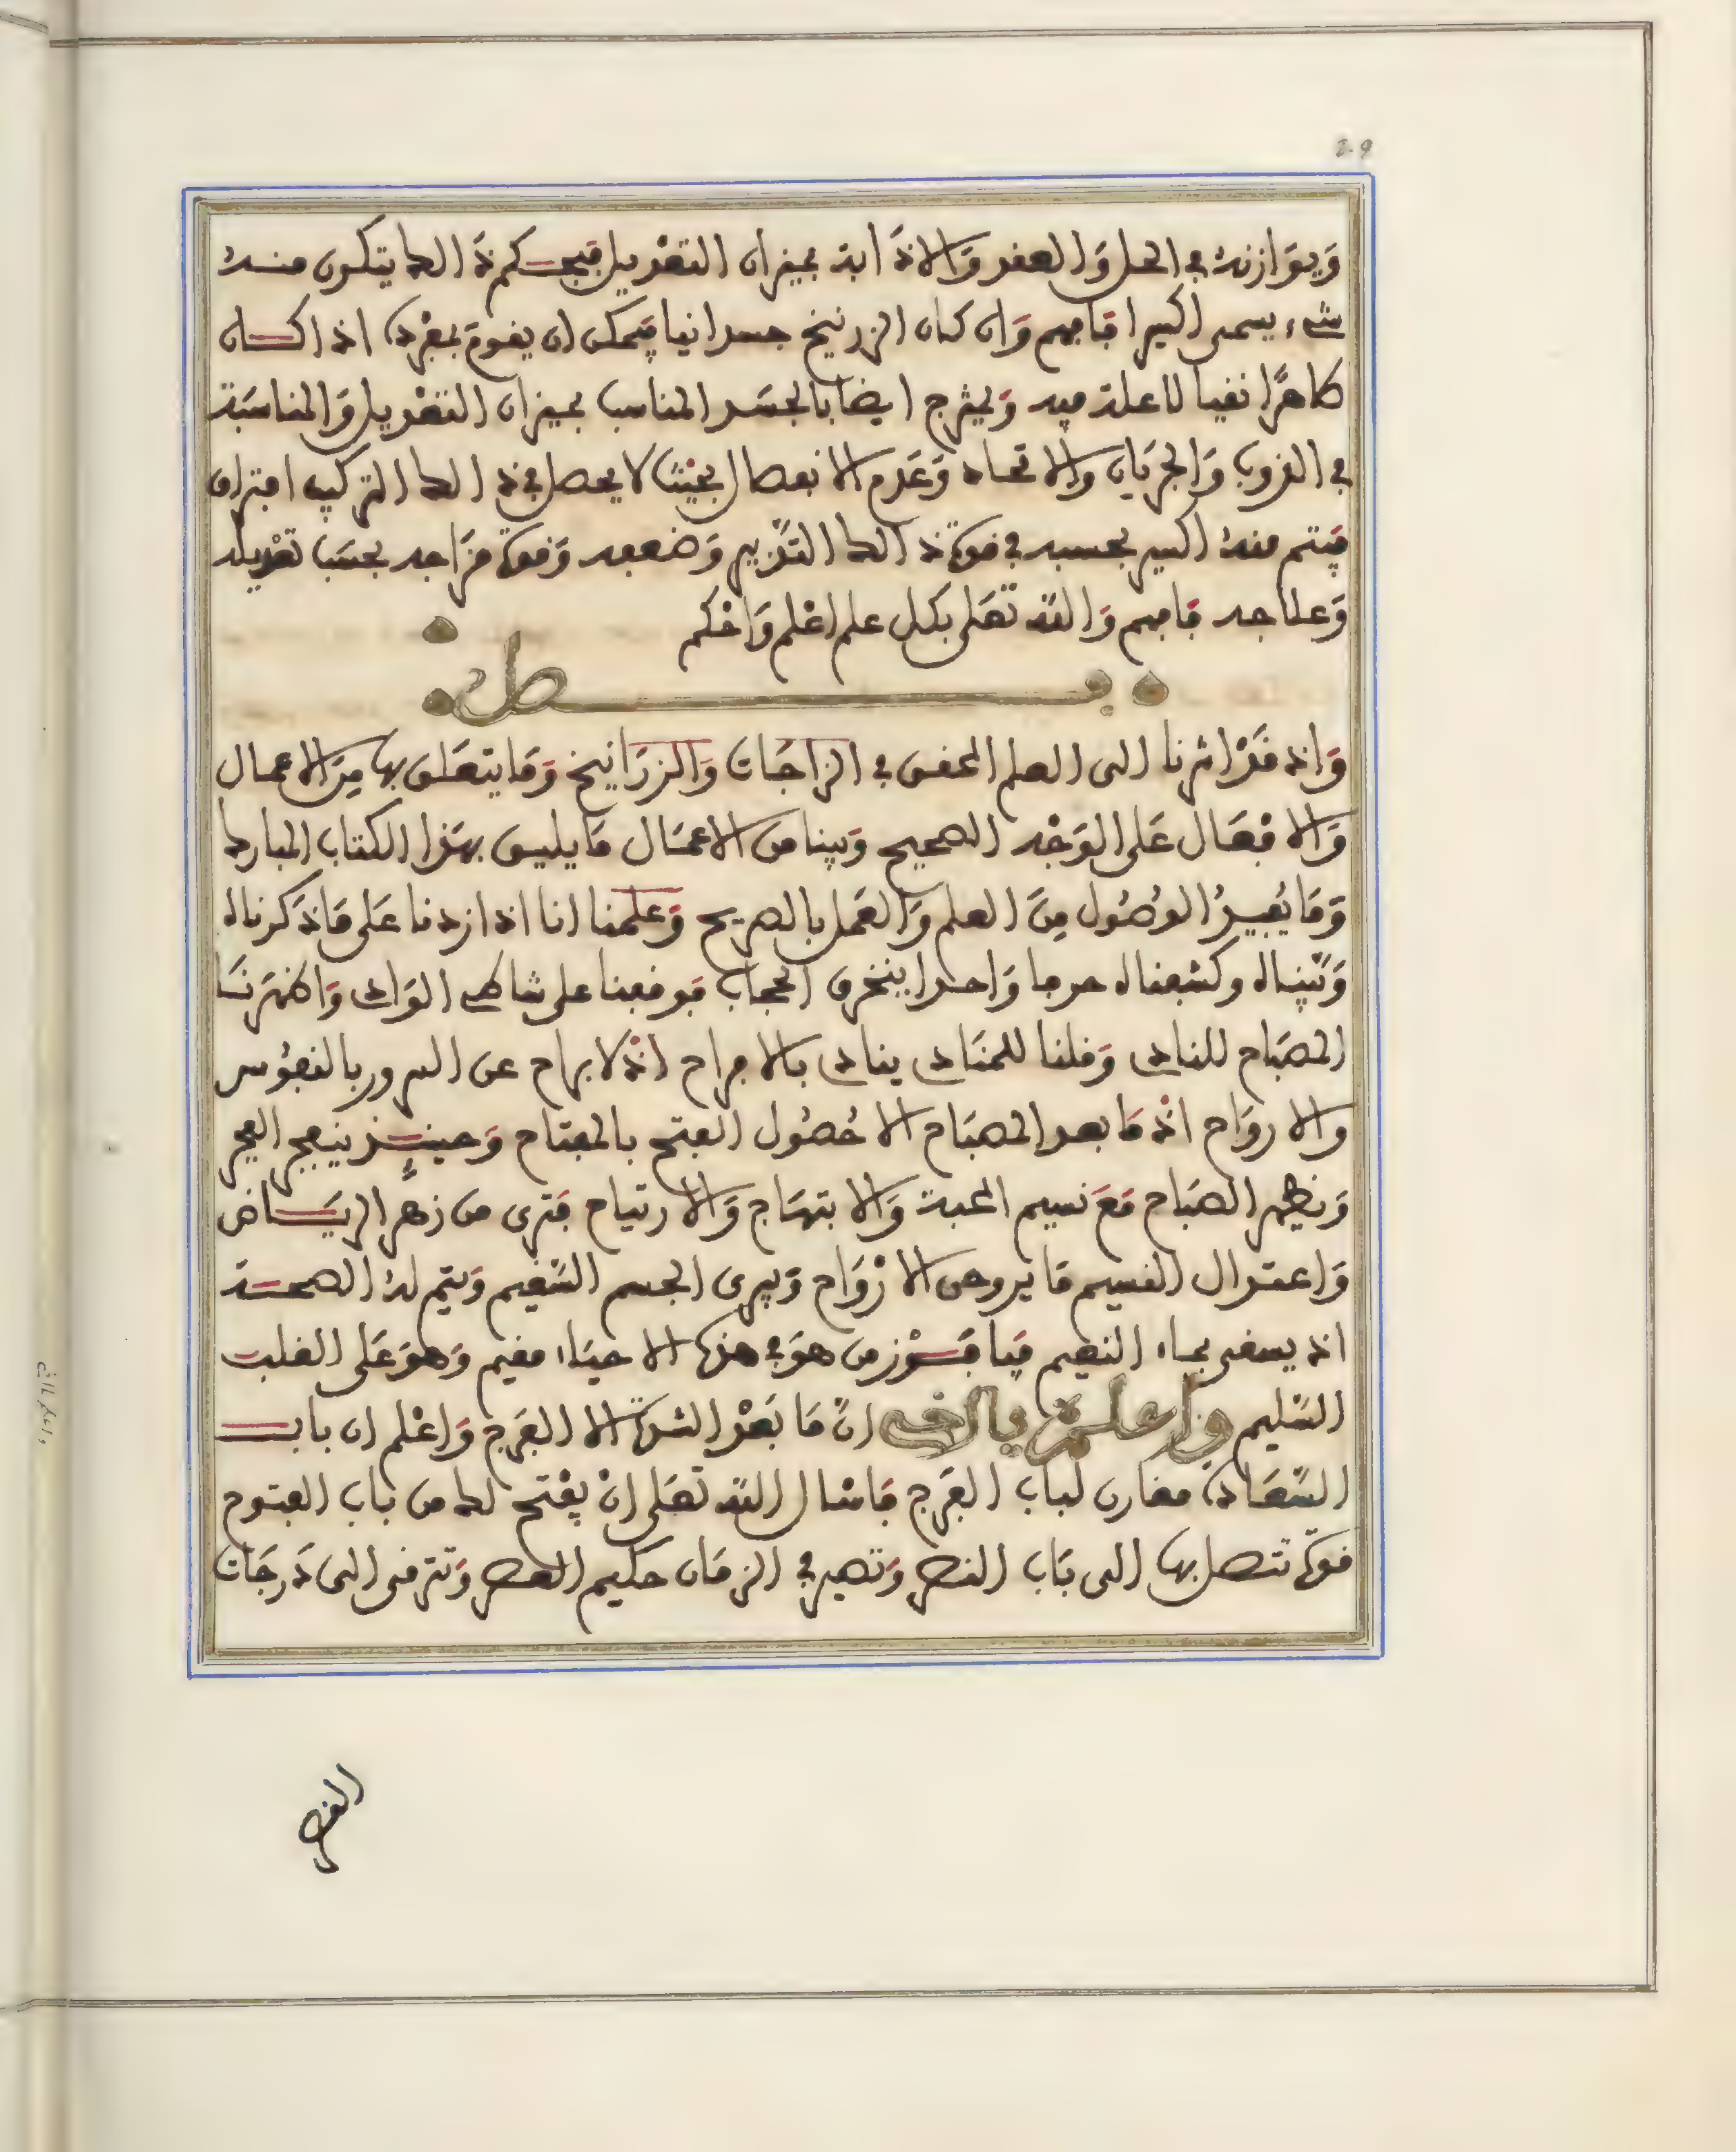 209
وَيوَازنه في الحل وَالعقد وَالاذَابة بميزان التعْديل فبحسب كم ذَالك يتكون منه
شيء يسمى اكسيرا فافهم وَان كان الزرنيخ جسدانيا فيمكن ان يقوم بمفرده اذا كان
طاهرًا نقيا لا علة فيه وَيمزج ايضا بالجسَد المناسب بميزان التعْديل وَالمناسَبة
في الذوب وَالجرَيان وَالاتحاد وَعَدم الانفصال بحيْث لا يحصل في ذالك التركيب افتراق
فيتم منه اكسير بحسبه في قوة ذالك التدْبير وَضعفه وَقوة مزَاجه بحسَب تعْديله
وَعلاجه فافهم وَالله تعَلى بكل علم اعْلم وَاحْكم
فصل
وَاذ قَدْ اشرنا الى العلم المحقق في الزاجَات وَالزرَانيخ وَمَا يتعَلق بها مِنَ الاعمال
وَالافعَال عَلى الوَجْه الصحيح وَبينا من الاعمَال مَا يليق بهَذا الكتاب المبارك
وَمَا يُفيدُ الوُصُول مِنَ العلم وَالعَمل بالصريح وَعلمنا انا اذا زدنا عَلى مَا ذكرناه
وَبَيّناه وكشفناه حرفا وَاحدا ينخرق الحجاب فوقفنا على شاطئ الوَادي وَاظهَرنَا
المصْبَاح للنادي وَقلنا للمنَادي ينادي بالافراح اذْ لا براح عن السرور بالنفوُس
وَالاروَاح اذْ مَا بعد المصبَاح الا حُصُول الفتح بالمفتاح وَحينئذٍ ينفجر الفجر
وَيظهر الصَبَاح مَعَ نسيم المحبة وَالابتهَاج وَالارتياح فترى من زهر الريَاض
وَاعتدال النسيم مَا يروحن الارْوَاح وَيبرى الجسم السَّقيم وَيتم له الصحة
اذ يسقى بماء النعيم فيا فوْز من هوَ في هذه الاحيَاء مقيم وَهوَ عَلى القلب
السَّليم وَاعلمْ يا اخي انّ مَا بَعْد الشدة الا الفَرج وَاعْلم ان باب
السَّعَادة مقارن لباب الفَرج فاسْال الله تعَلى انْ يفْتح لك من باب الفتوح
قوة تتصل بها الى بَاب النصر وَتصير في الزمَان حكيم العصر وَتترقى الى دَرجَات
القصر